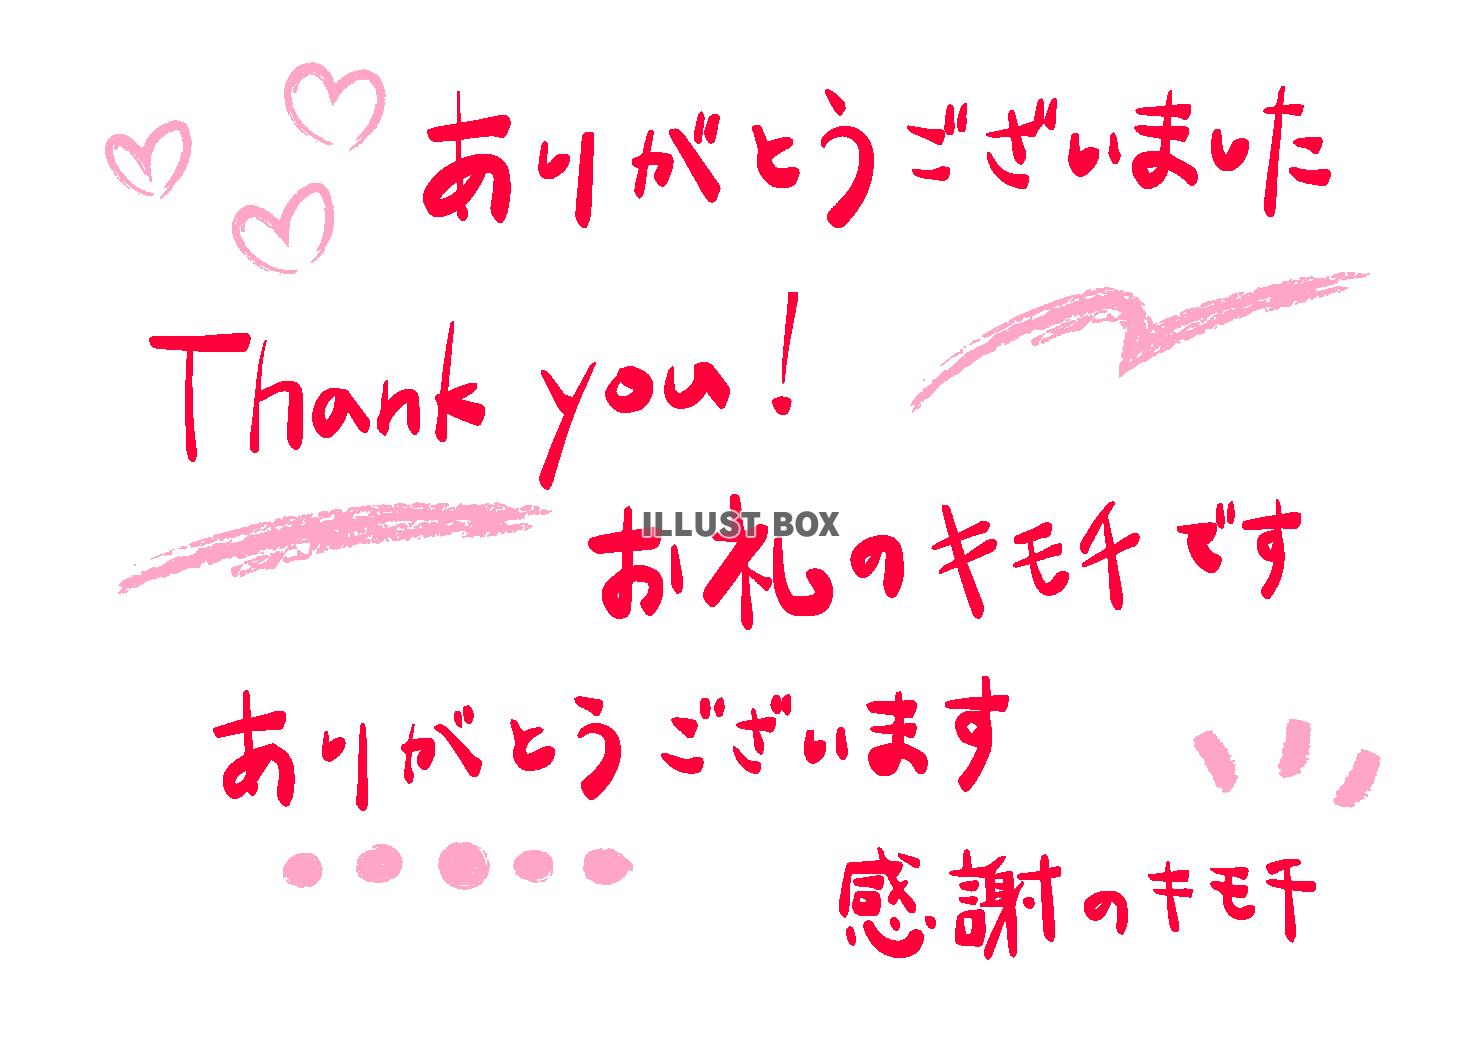 ありがとうございました
Thank you!
ILLUST BOX
お礼のキモチです
ありがとうございます
感謝のキモチ